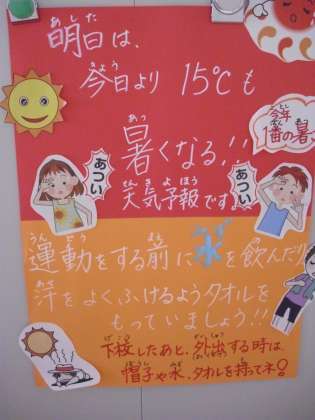 明日は、
今日より 15℃も
暑くなる!!
天気予報です。
今年
1番の暑
あつい
あつい
運動をする前に水を飲んだり
汗をよくふけるようタオルを
もっていましょう!!
下校したあと、外出する時は
帽子や水、タオルを持ってネ!